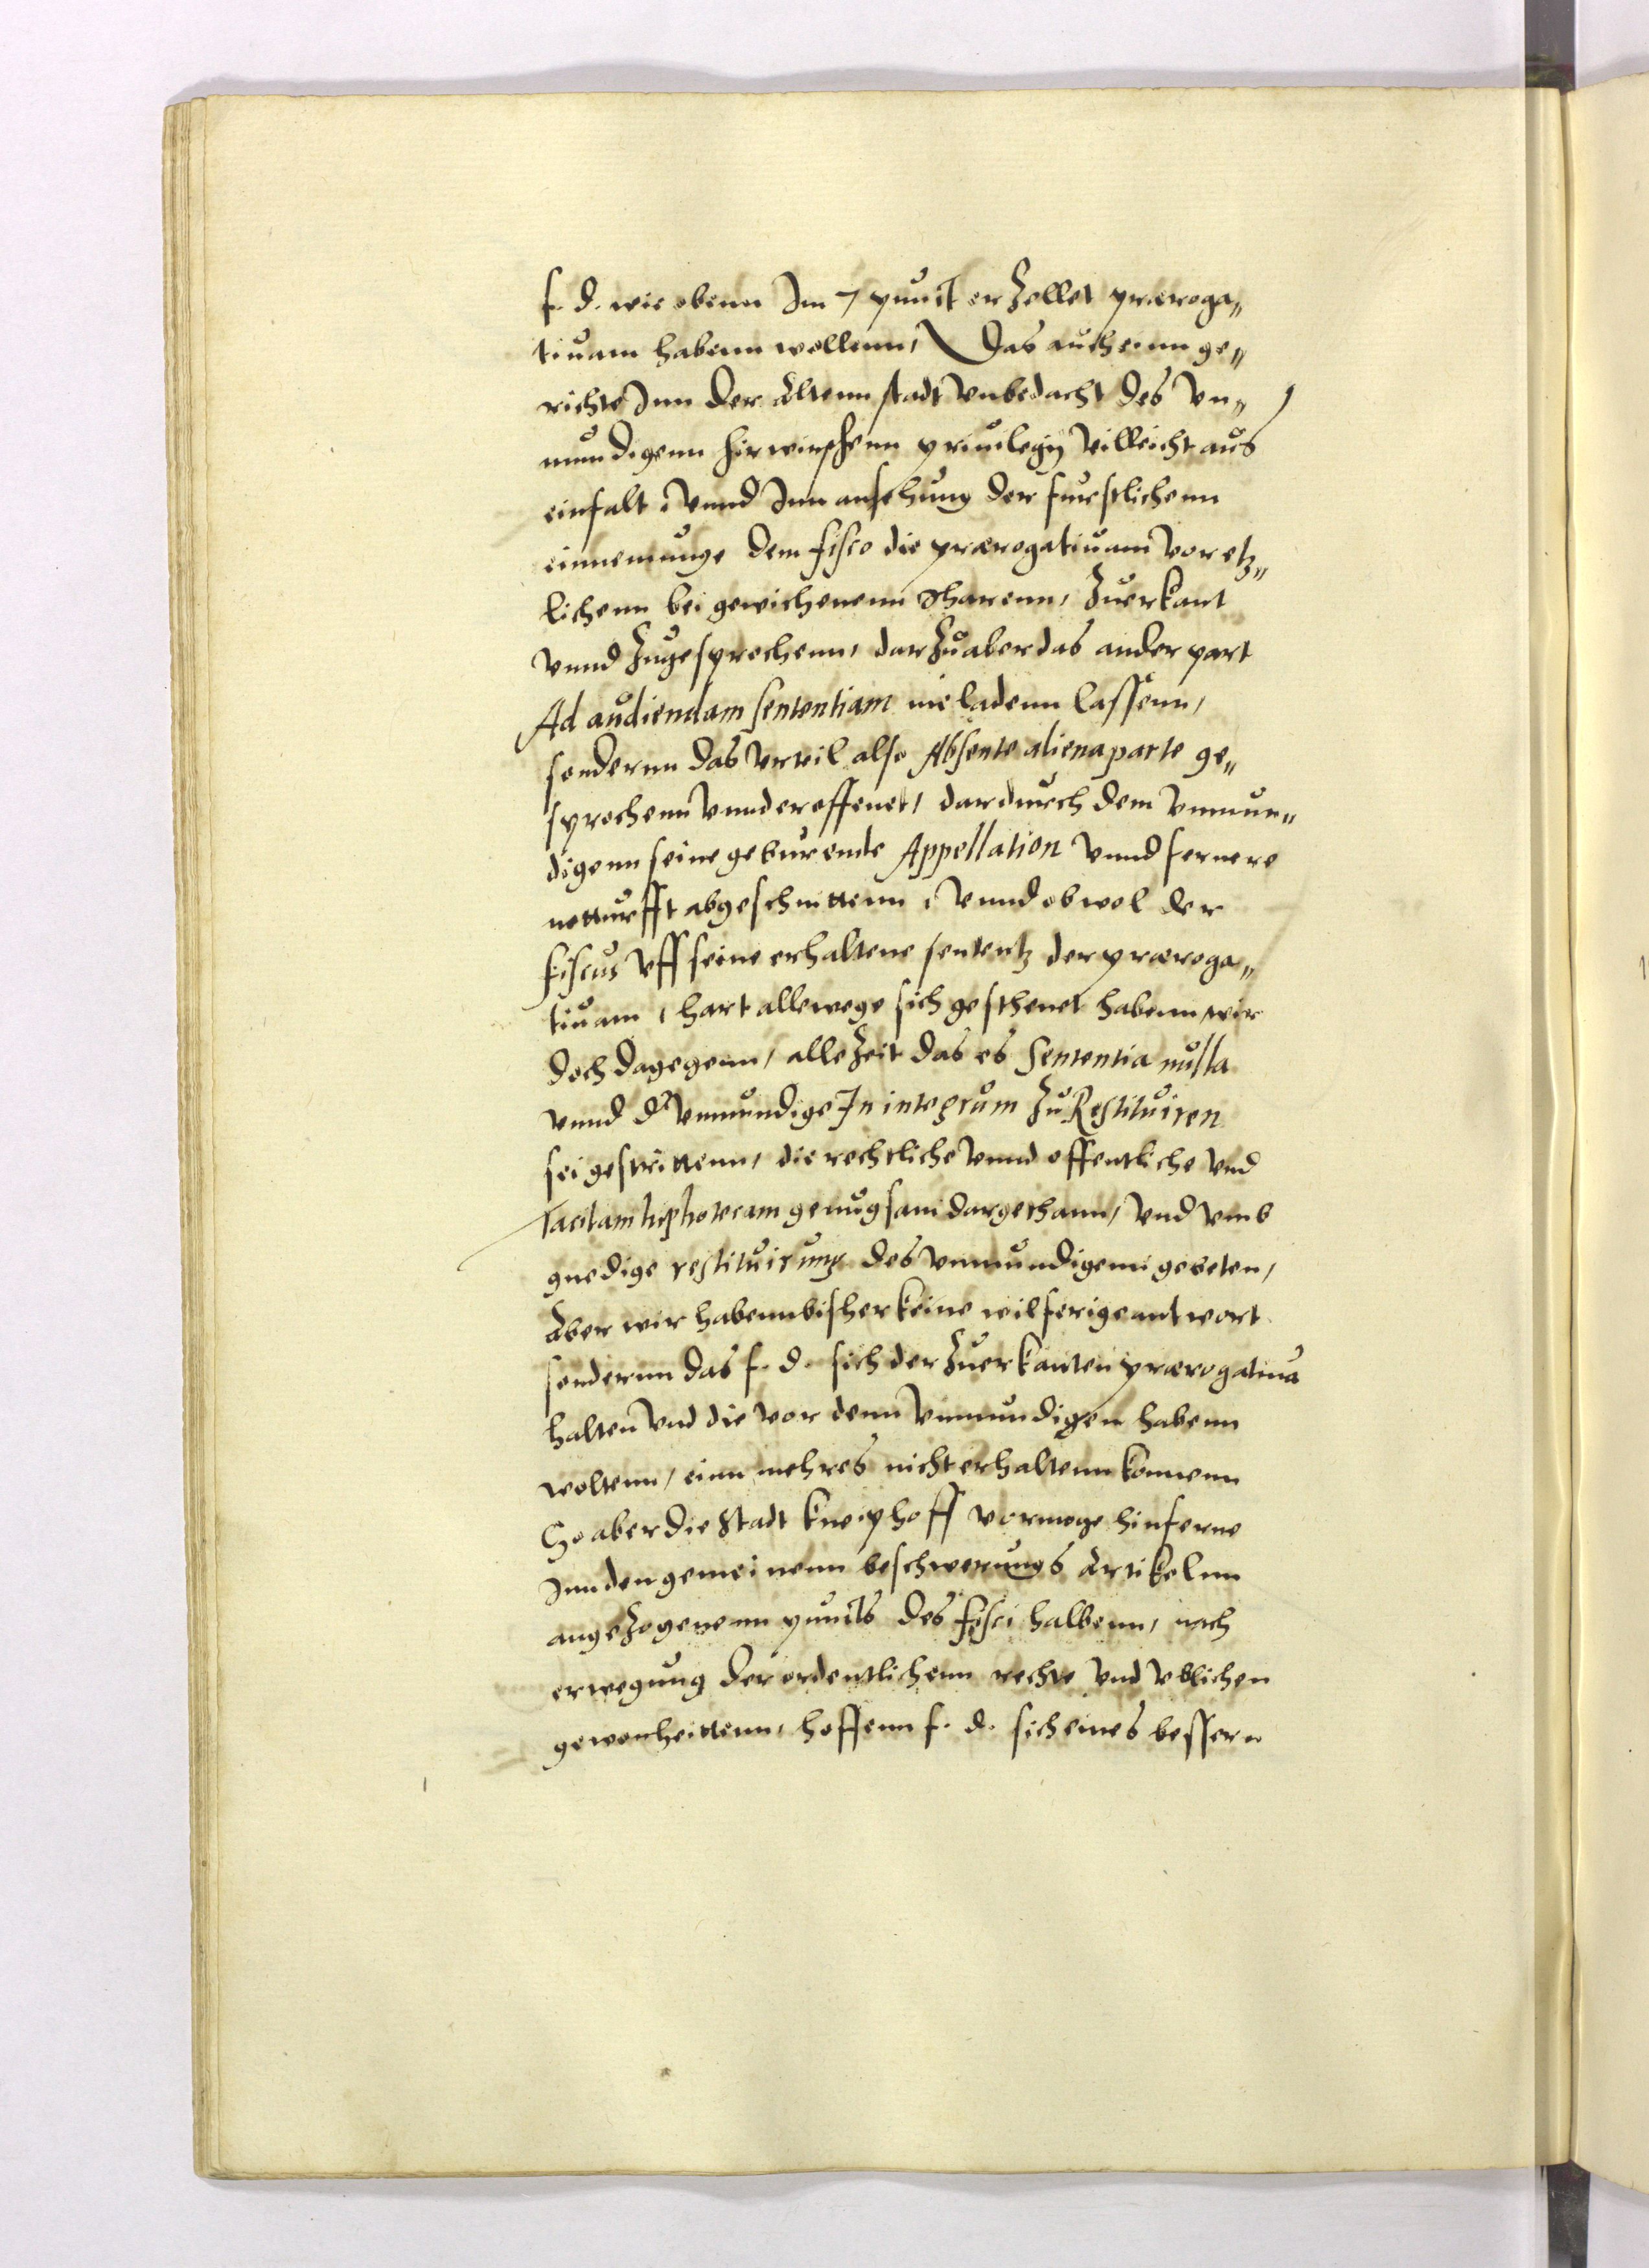 f. d. wie obenn Im 7 punct erZellet præroga„
tiuam habenn wollenn, Das auch einn ge„
richte Inn der Altenn stadt vnbedacht des vn„
mundigenn hirwirshenn priuilegij villeicht aus
einfalt, vnnd Inn ansehung der furstlichenn
einnemunge dem fisco die prærogatiuam vor etz„
lichenn bei gewichenenn Iharenn, Zuerkant
vnnd Zugesprochenn, darZu aber das ander part
Ad audiendam sententiam nie ladenn lassenn,
sondernn das vrteil also Absente aliena parte ge„
sprochenn vnnd eroffenet, dardurch dem vnmun„
digenn seine geburende Appellation vnnd fernere
notturfft abgeschnittenn, vnnd obwol der
fiscus vff seine erhaltene sententz der præroga„
tiuam, hart allewege sich gesthenet habenn wir
doch dagegenn, alleZeit das es Sententia nulla
vnnd dr vnmundige In integrum Zu Restituiren
sei gestrittenn, die rechtliche vnnd offentliche vnd
tacitam hiphotecam genugsam dargethann, vnd vmb
gnedige restituirung des vnmundigenn gebeten,
Aber wir habenn bisher keine wilferige antwort
sondernn das f. d. sich der Zuerkanten prærogatiua
halten vnd die vor denn vnmundigen habenn
woltenn, einn mehres nicht erhaltenn konnenn
So aber die Stadt kneiphoff vormoge hinferne
Inn den gemeinenn beschwerungs Artikelnn
angeZogenenn puncts des fisci halbenn, nach
erwegung der ordentlichenn rechte vnd vblichen
gewonheittenn, hoffenn f. d. sich eines bessern